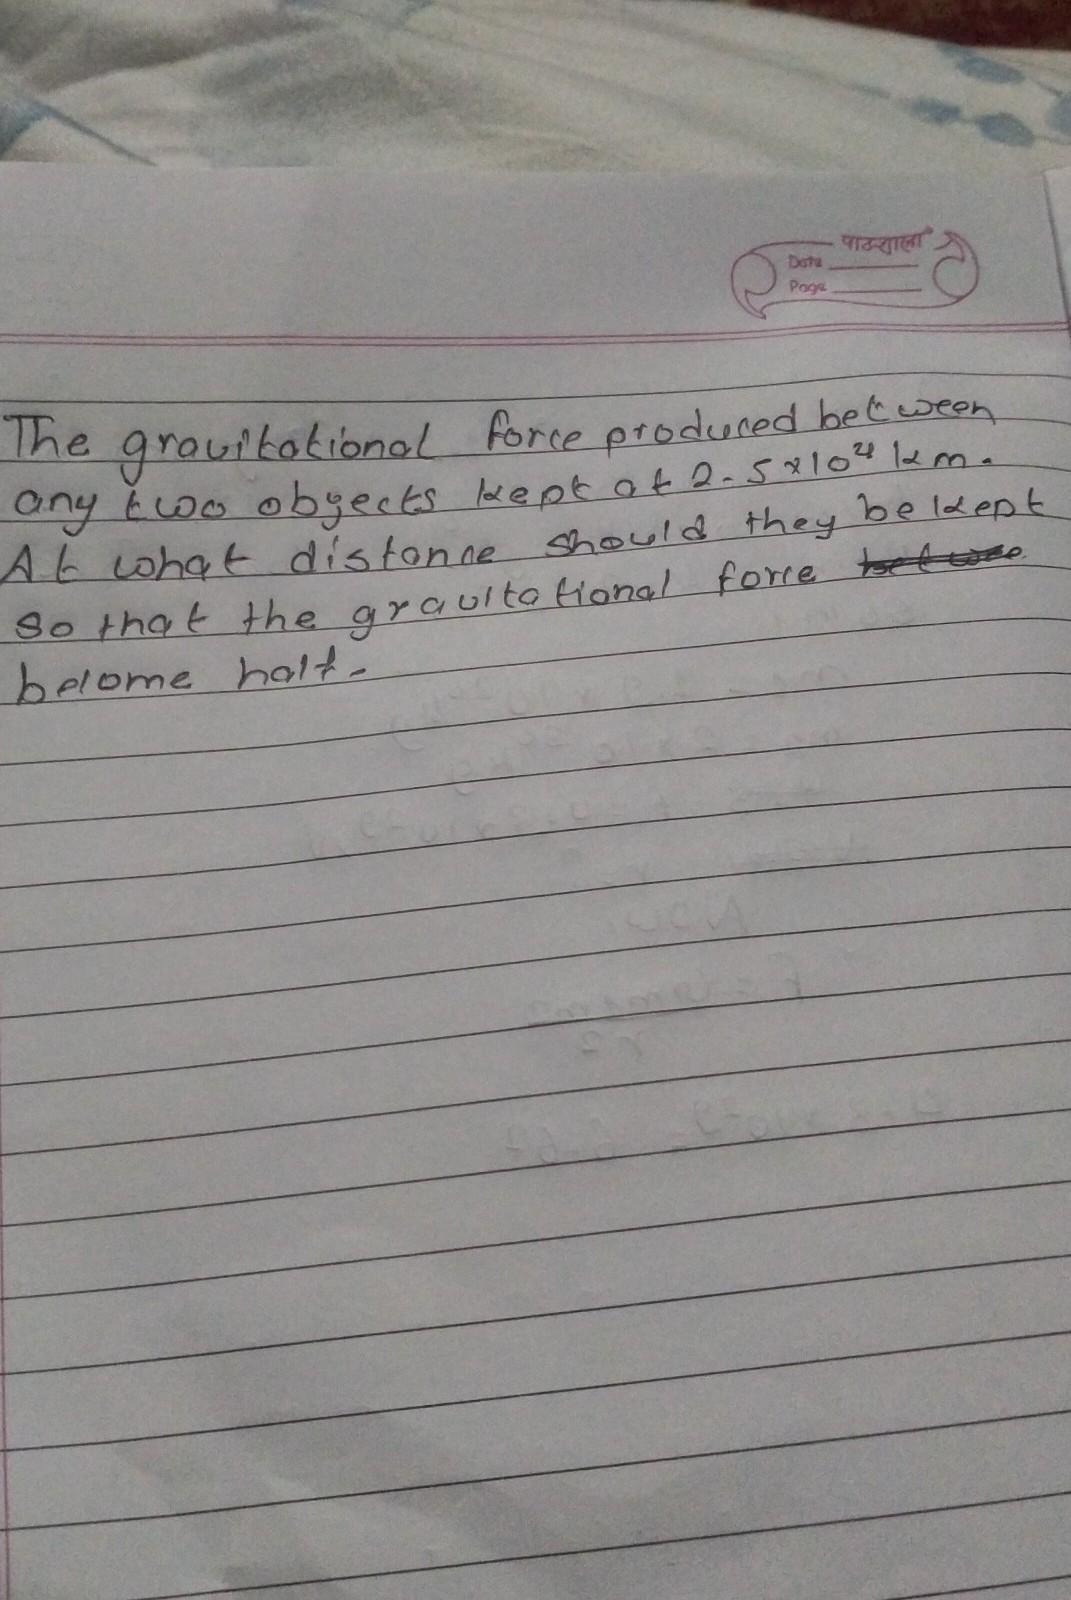 पाठशाला
Date
Page
The gravitational force produced between
any two obyects kept at 2.5×10⁴ km.
At what distance should they be kept
so that the gravitational force
become half.